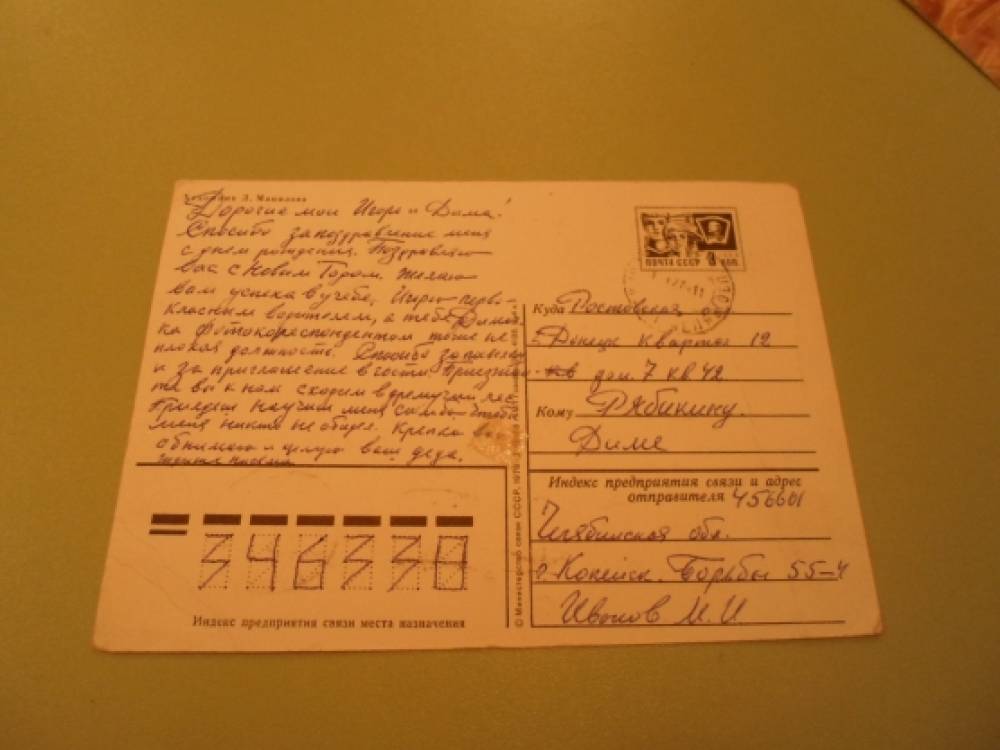 Художник Л. Манилова
Дорогие мои Игорь и Дима!
Спосибо за поздравление меня
с днем рождения. Поздравляю
вас с Новым Годом. Желаю
вам успеха в учебе, Игорю перво-
класным водителем, а тебе Димоч-
ка фотокореспондентом тоже не
плохая должность. Спосибо за
и за приглашение в гости. Приезжай-
те вы к нам сходим в дремучий лес.
Приедеш научиш меня самбо чтоб
меня никто не обидел. Крепко вас
обнимаю и целую ваш деда.
ПОЧТА СССР 4 КОП.
Куда Ростовская
г. Донецк квартал 12
дом. 7 кв 42
Кому Рябикину.
Диме
Индекс предприятия связи и адрес
отправителя 456601
Челябинская обл.
г. Копейск. Борьбы 55-4
Иванов И. И
346330
Индекс предприятия связи места назначения
© Министерство связи СССР. 1978